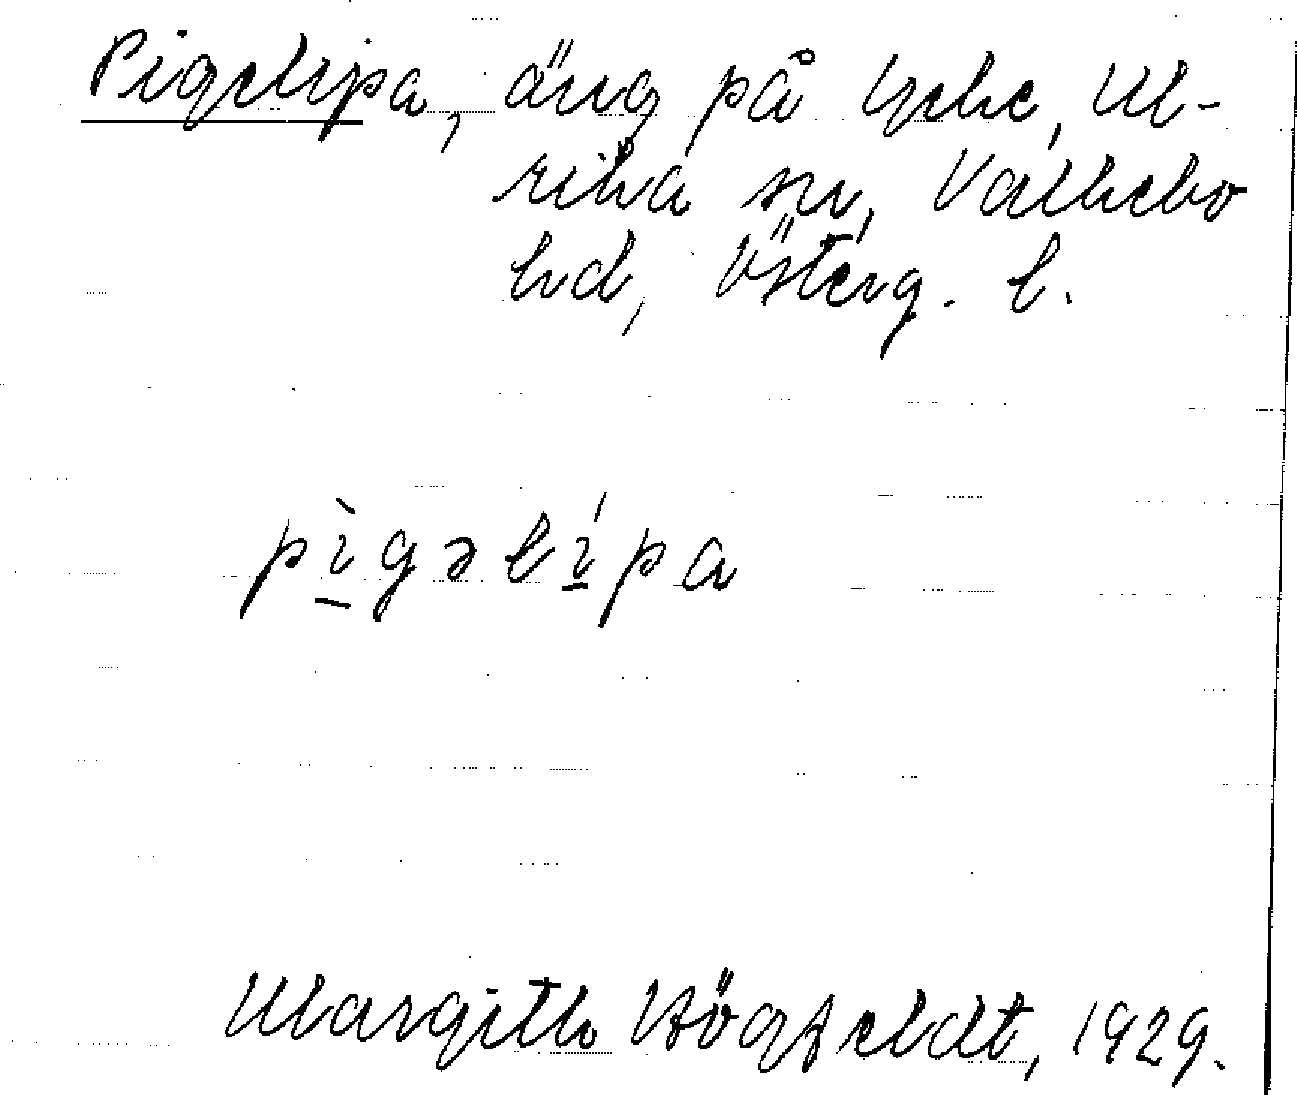 Pigelipa, äng på Lycke, Ul-
rika sn, Valkebo
hd, Österg. l.
pìgəlípa
Margith Högfeldt, 1929.